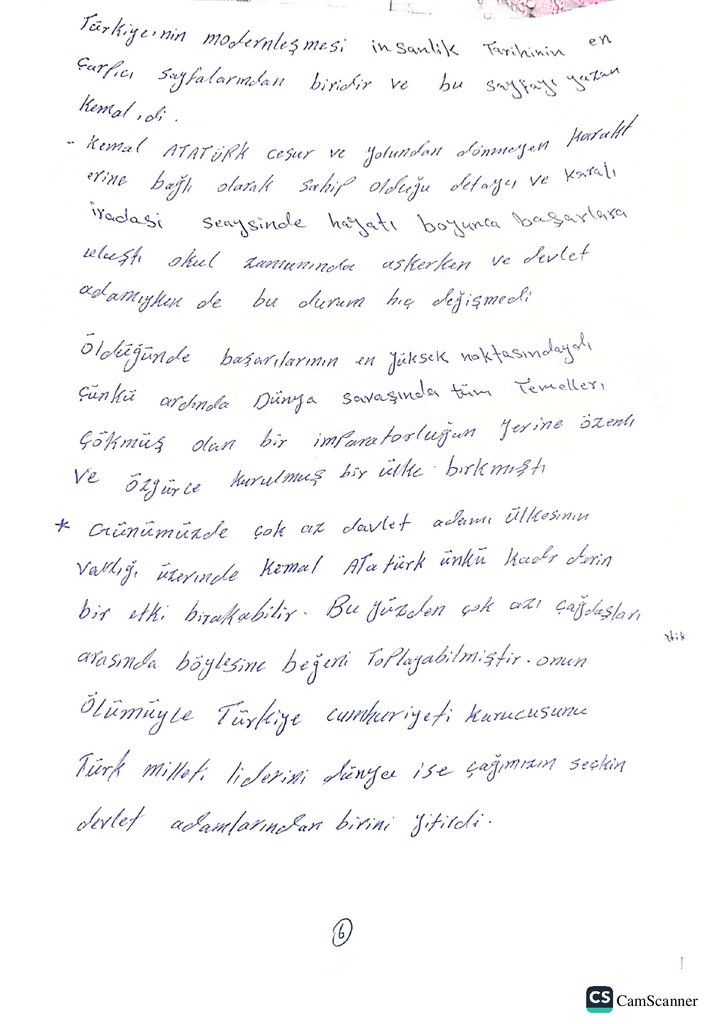 Türkiye'nin modernleşmesi insanlik Tarihinin en
Çarpıcı sayfalarından biridir ve bu sayfayı yazan
Kemal'di.
- Kemal ATATÜRK cesur ve yolundan dönmeyen karakt
erine bağlı olarak sahip olduğu detaycı ve Karalı
iradasi seaysinde hayatı boyunca başarlara
ulaştı okul zamanında askerken ve devlet
adamıyken de bu durum hiç değişmedi
Öldüğünde başarılarının en yüksek noktasındaydı
Çünkü ardında Dünya savaşında tüm Temelleri
Çökmüş olan bir imparatorluğun yerine özenli
ve özgürce kurulmuş bir ülke birkmıştı
* Günümüzde çok az davlet adamı ülkesinin
varlığı üzerinde Kemal ATatürk ünkü kadr derin
bir etki bırakabilir. Bu yüzden çok azı çağdaşları
arasında böylesine beğeni Toplayabilmiştir. onun
Ölümüyle Türkiye cumhuriyeti kurucusunu
Türk milleti liderini dünya ise çağımızın seçkin
devlet adamlarından birini yitirdi.
6
CS CamScanner